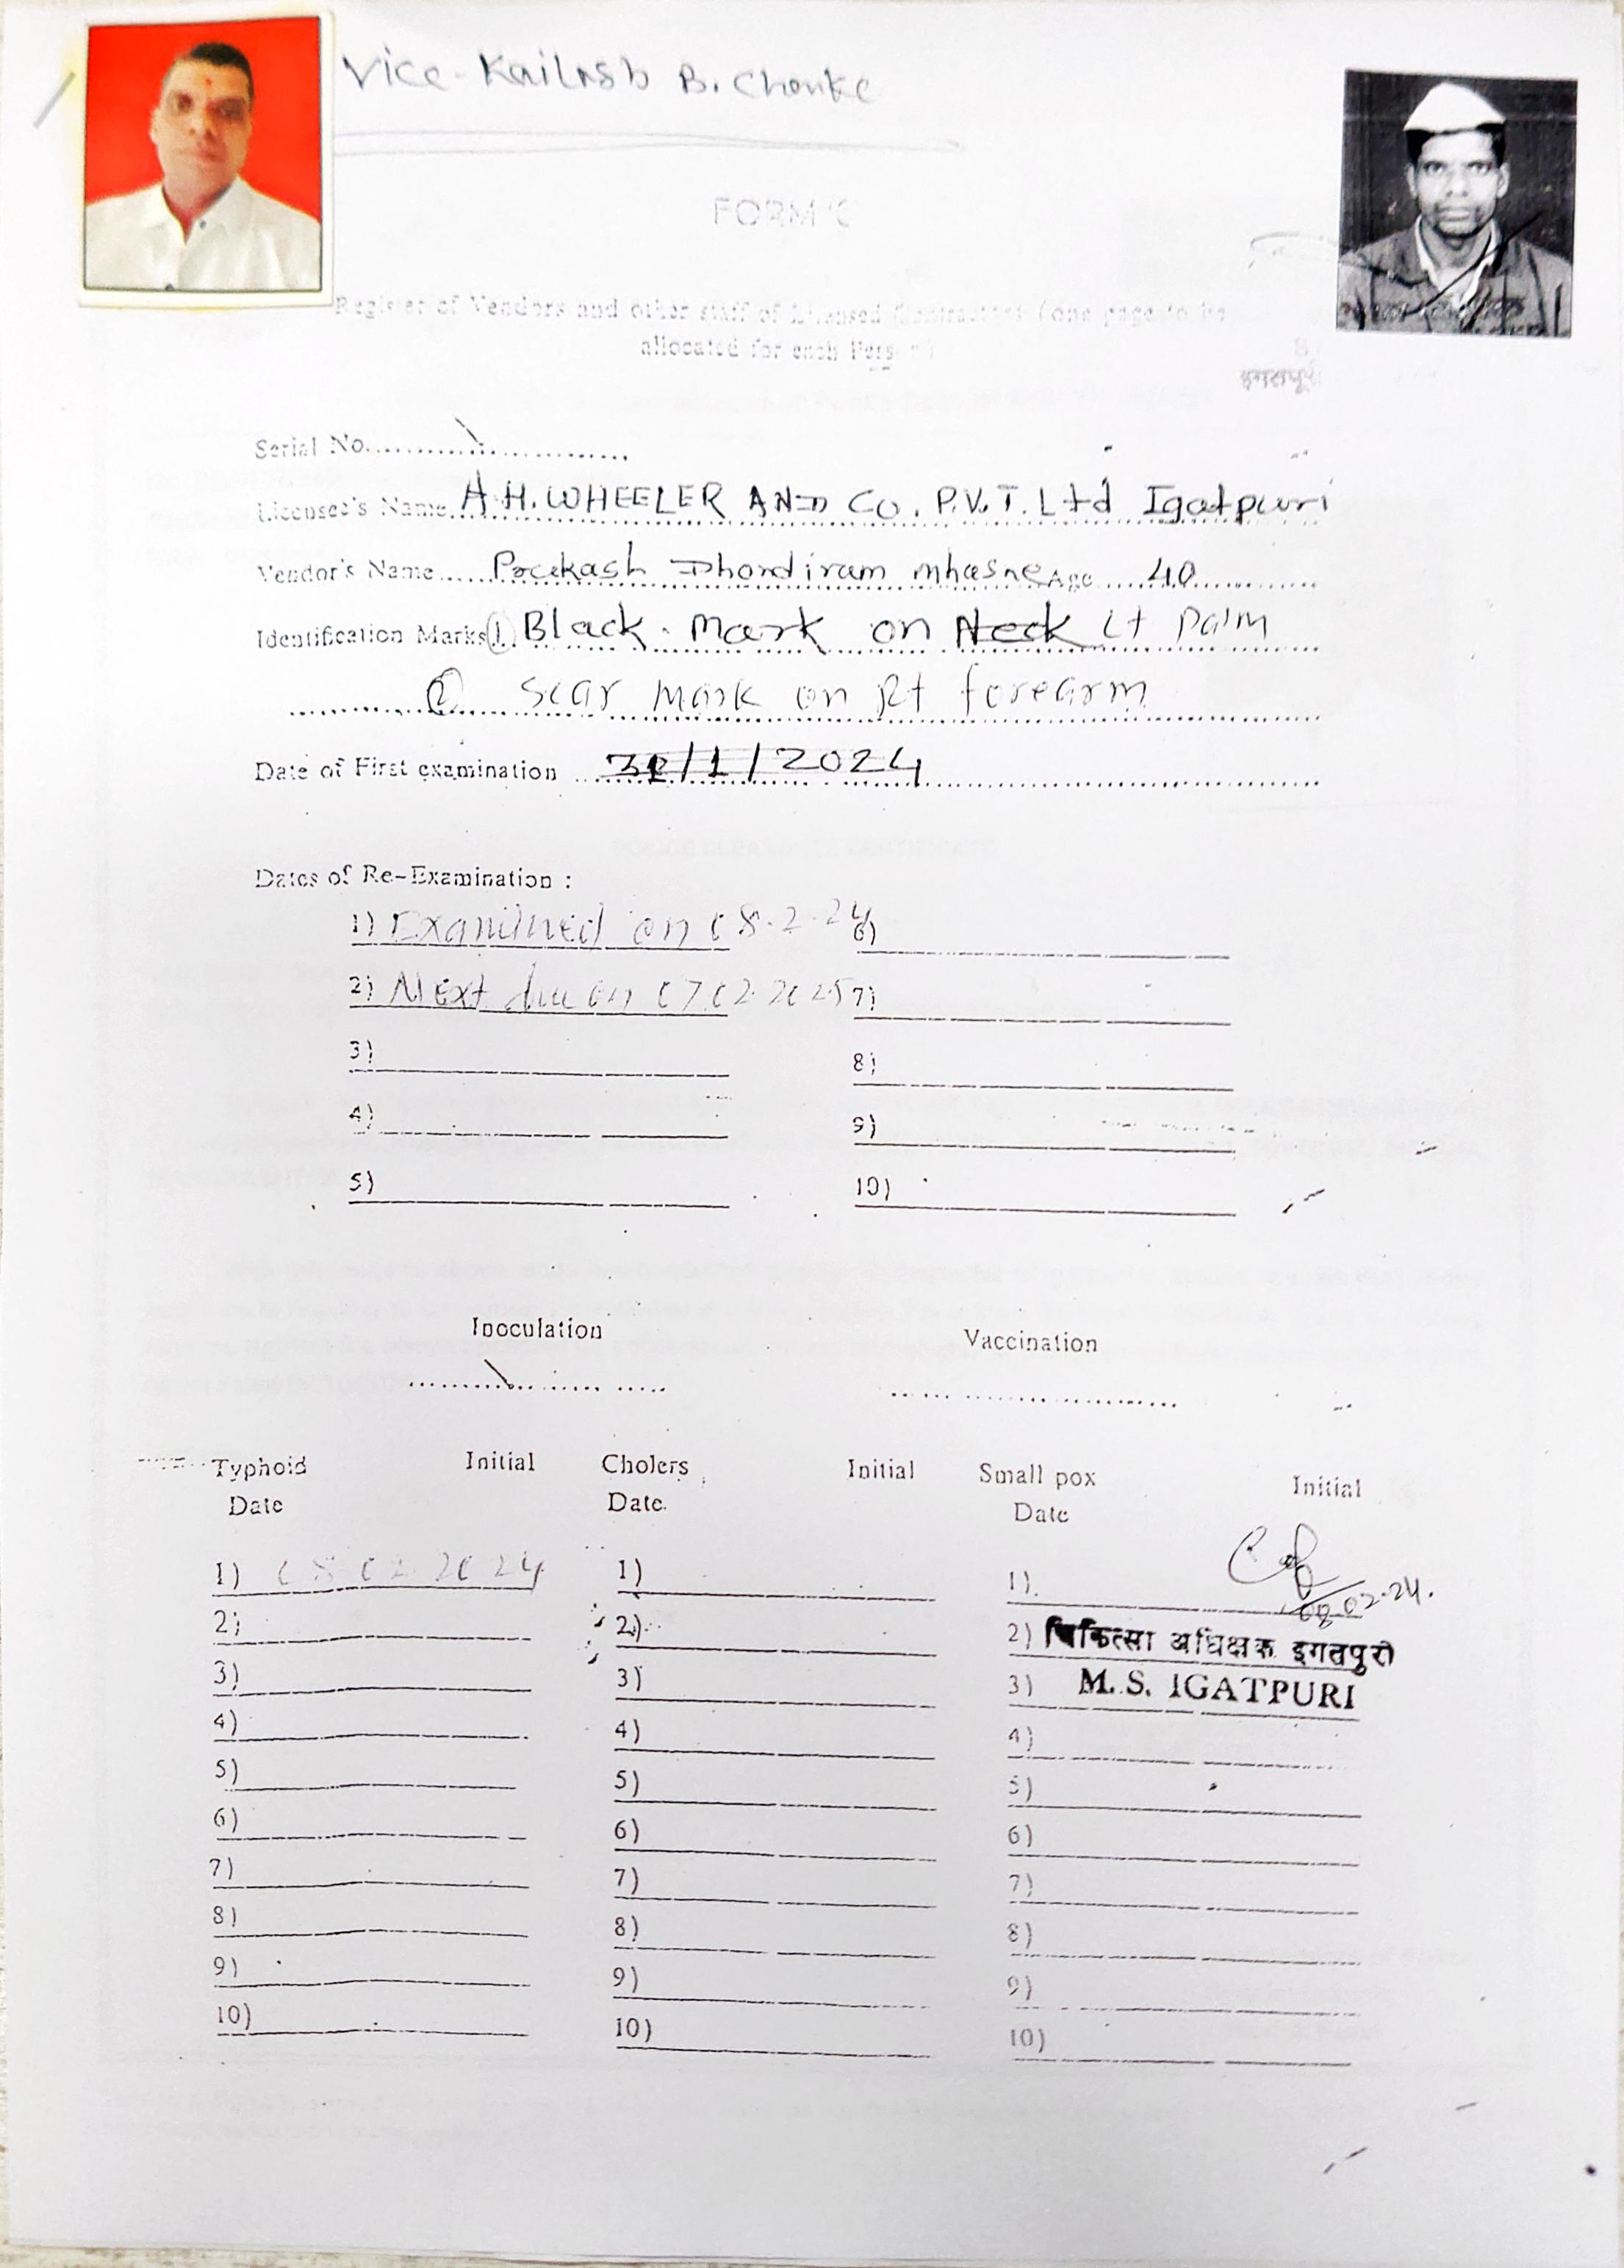 Vice - Kailash B. Chonke
FORM 'C
Register of Vendors and other staff of Licensed Contractors (one page to be
allocated for each Person)
इगतपुरी
Serial No.
Licensee's Name A.H. WHEELER AND CO. P.V.T. Ltd Igatpuri
Vendor's Name Prakash Dhondiram mhasne Age 40
Identification Marks 1 Black mark on Neck Lt palm
2 Scar mark on Rt forearm
Date of First examination 31/1/2024
Dates of Re-Examination :
1) Examined on 08.2.24 6)
2) Next due on 07.02.2025 7)
3) 8)
4) 9)
5) 10)
Inoculation Vaccination
Typhoid Initial Cholers Initial Small pox Initial
Date Date. Date
1) 08 02 2024 1) 1). 08.02.24.
2) 2) 2) चिकित्सा अधिक्षक इगतपुरी
3) 3) 3) M. S. IGATPURI
4) 4) 4)
5) 5) 5)
6) 6) 6)
7) 7) 7)
8) 8) 8)
9) 9) 9)
10) 10) 10)